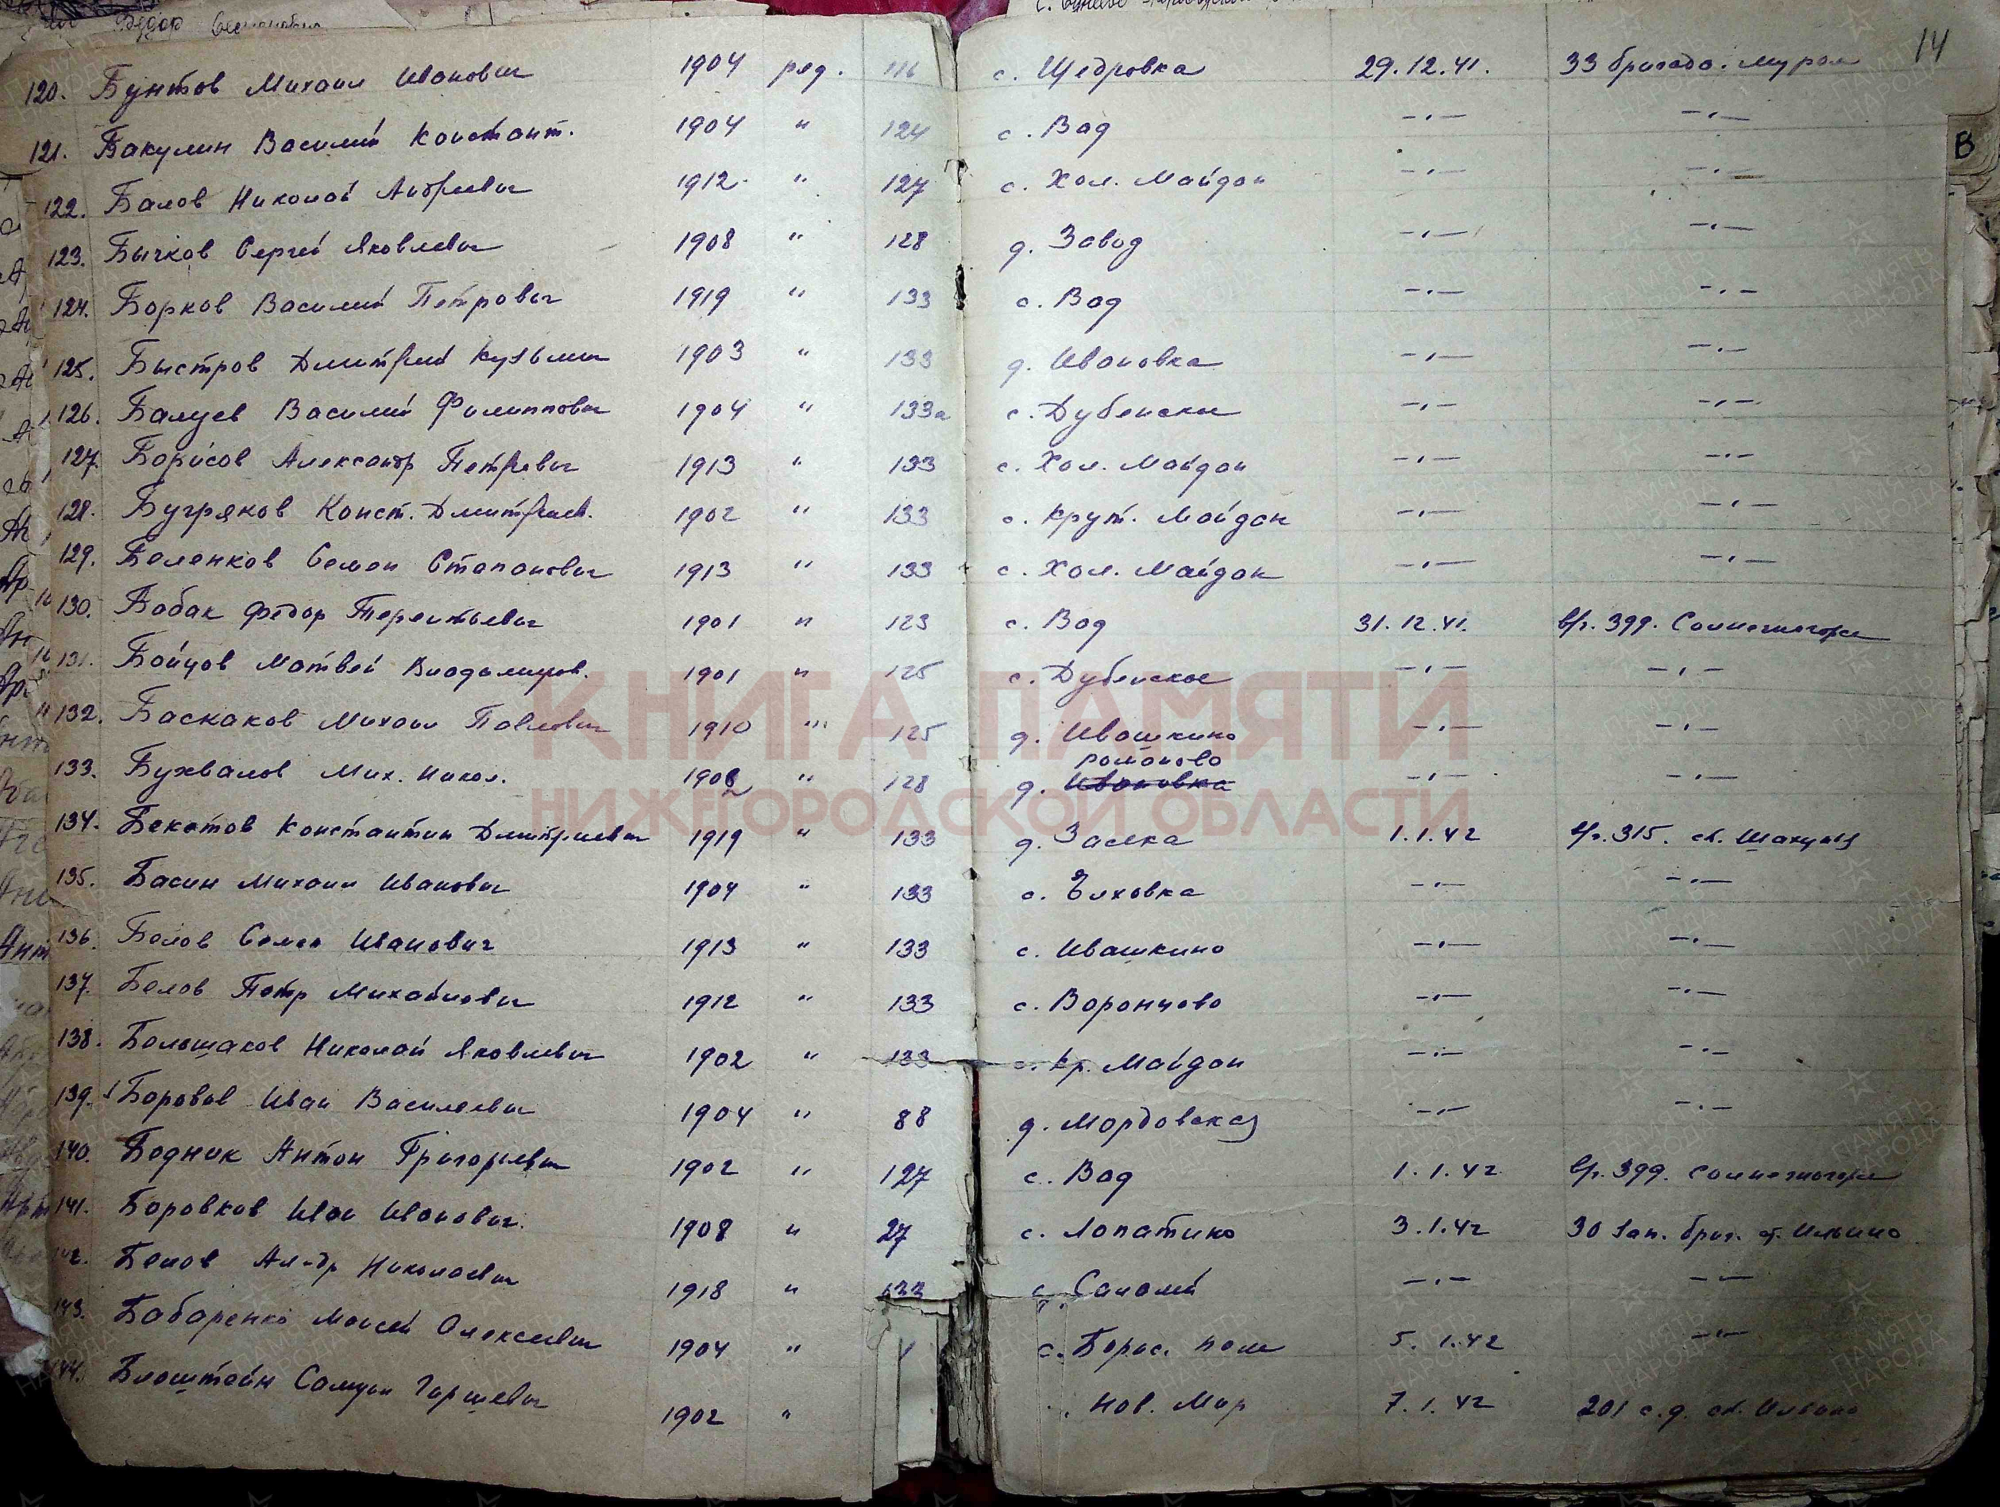 14
120. Бунтов Михаил Иванович 1904 ряд. 116 с. Щедровка 29.12.41. 33 бригада. Муром
121. Бакулин Василий Констант. 1904 " 124 с. Вад —„— —„—
122. Балов Николай Андреевич 1912 " 127 с. Хол. Майдан —„— —„—
123. Бычков Сергей Яковлевич 1908 " 128 д. Завод —„— —„—
124. Борков Василий Петрович 1919 " 133 с. Вад —„— —„—
125. Быстров Дмитрий Кузьмич 1903 " 133 д. Ивановка —„— —„—
126. Балуев Василий Филиппович 1904 " 133а с. Дубенское —„— —„—
127. Борисов Александр Петрович 1913 " 133 с. Хол. Майдан —„— —„—
128. Бугряков Конст. Дмитриев. 1902 " 133 с. Крут. Майдан —„— —„—
129. Беленков Семен Степанович 1913 " 133 с. Хол. Майдан —„— —„—
130. Бабак Федор Терентьевич 1901 " 123 с. Вад 31.12.41. в/ч. 399. Солнечногорск
131. Бойцов Матвей Владимиров. 1901 " 125 с. Дубенское —„— —„—
132. Баскаков Михаил Павлович 1910 " 125 д. Ивашкино —„— —„—
Романово
133. Бухвалов Мих. Никол. 1902 " 128 д. Ивановка —„— —„—
134. Бекетов Константин Дмитриевич 1919 " 133 д. Засека 1.1.42 в/ч. 315. ст. Шахунья
135. Басин Михаил Иванович 1904 " 133 с. Елховка —„— —„—
136. Белов Семен Иванович 1913 " 133 с. Ивашкино —„— —„—
137. Белов Петр Михайлович 1912 " 133 с. Воронцово —„— —„—
138. Большаков Николай Яковлевич 1902 " 133 с. Кр. Майдан —„— —„—
139. Боровов Иван Васильевич 1904 " 88 д. Мордовская —„— —„—
140. Бедник Антон Григорьевич 1902 " 127 с. Вад 1.1.42 в/ч. 399. Солнечногорск
141. Боровков Иван Иванович. 1908 " 27 с. Лопатино 3.1.42 30 зап. бриг. ст. Ильино
142. Белов Ал-др Николаевич 1918 " 133 с. Салалей —„— —„—
143. Бабаренко Моисей Олексеевич 1904 " с. Борис. поле 5.1.42 —„—
144. Блоштейн Самуил Гершевич 1902 " Нов. Мир 7.1.42 201 с.д. ст. Ильино
В
КНИГА ПАМЯТИ
НИЖЕГОРОДСКОЙ ОБЛАСТИ
ПАМЯТЬ НАРОДА